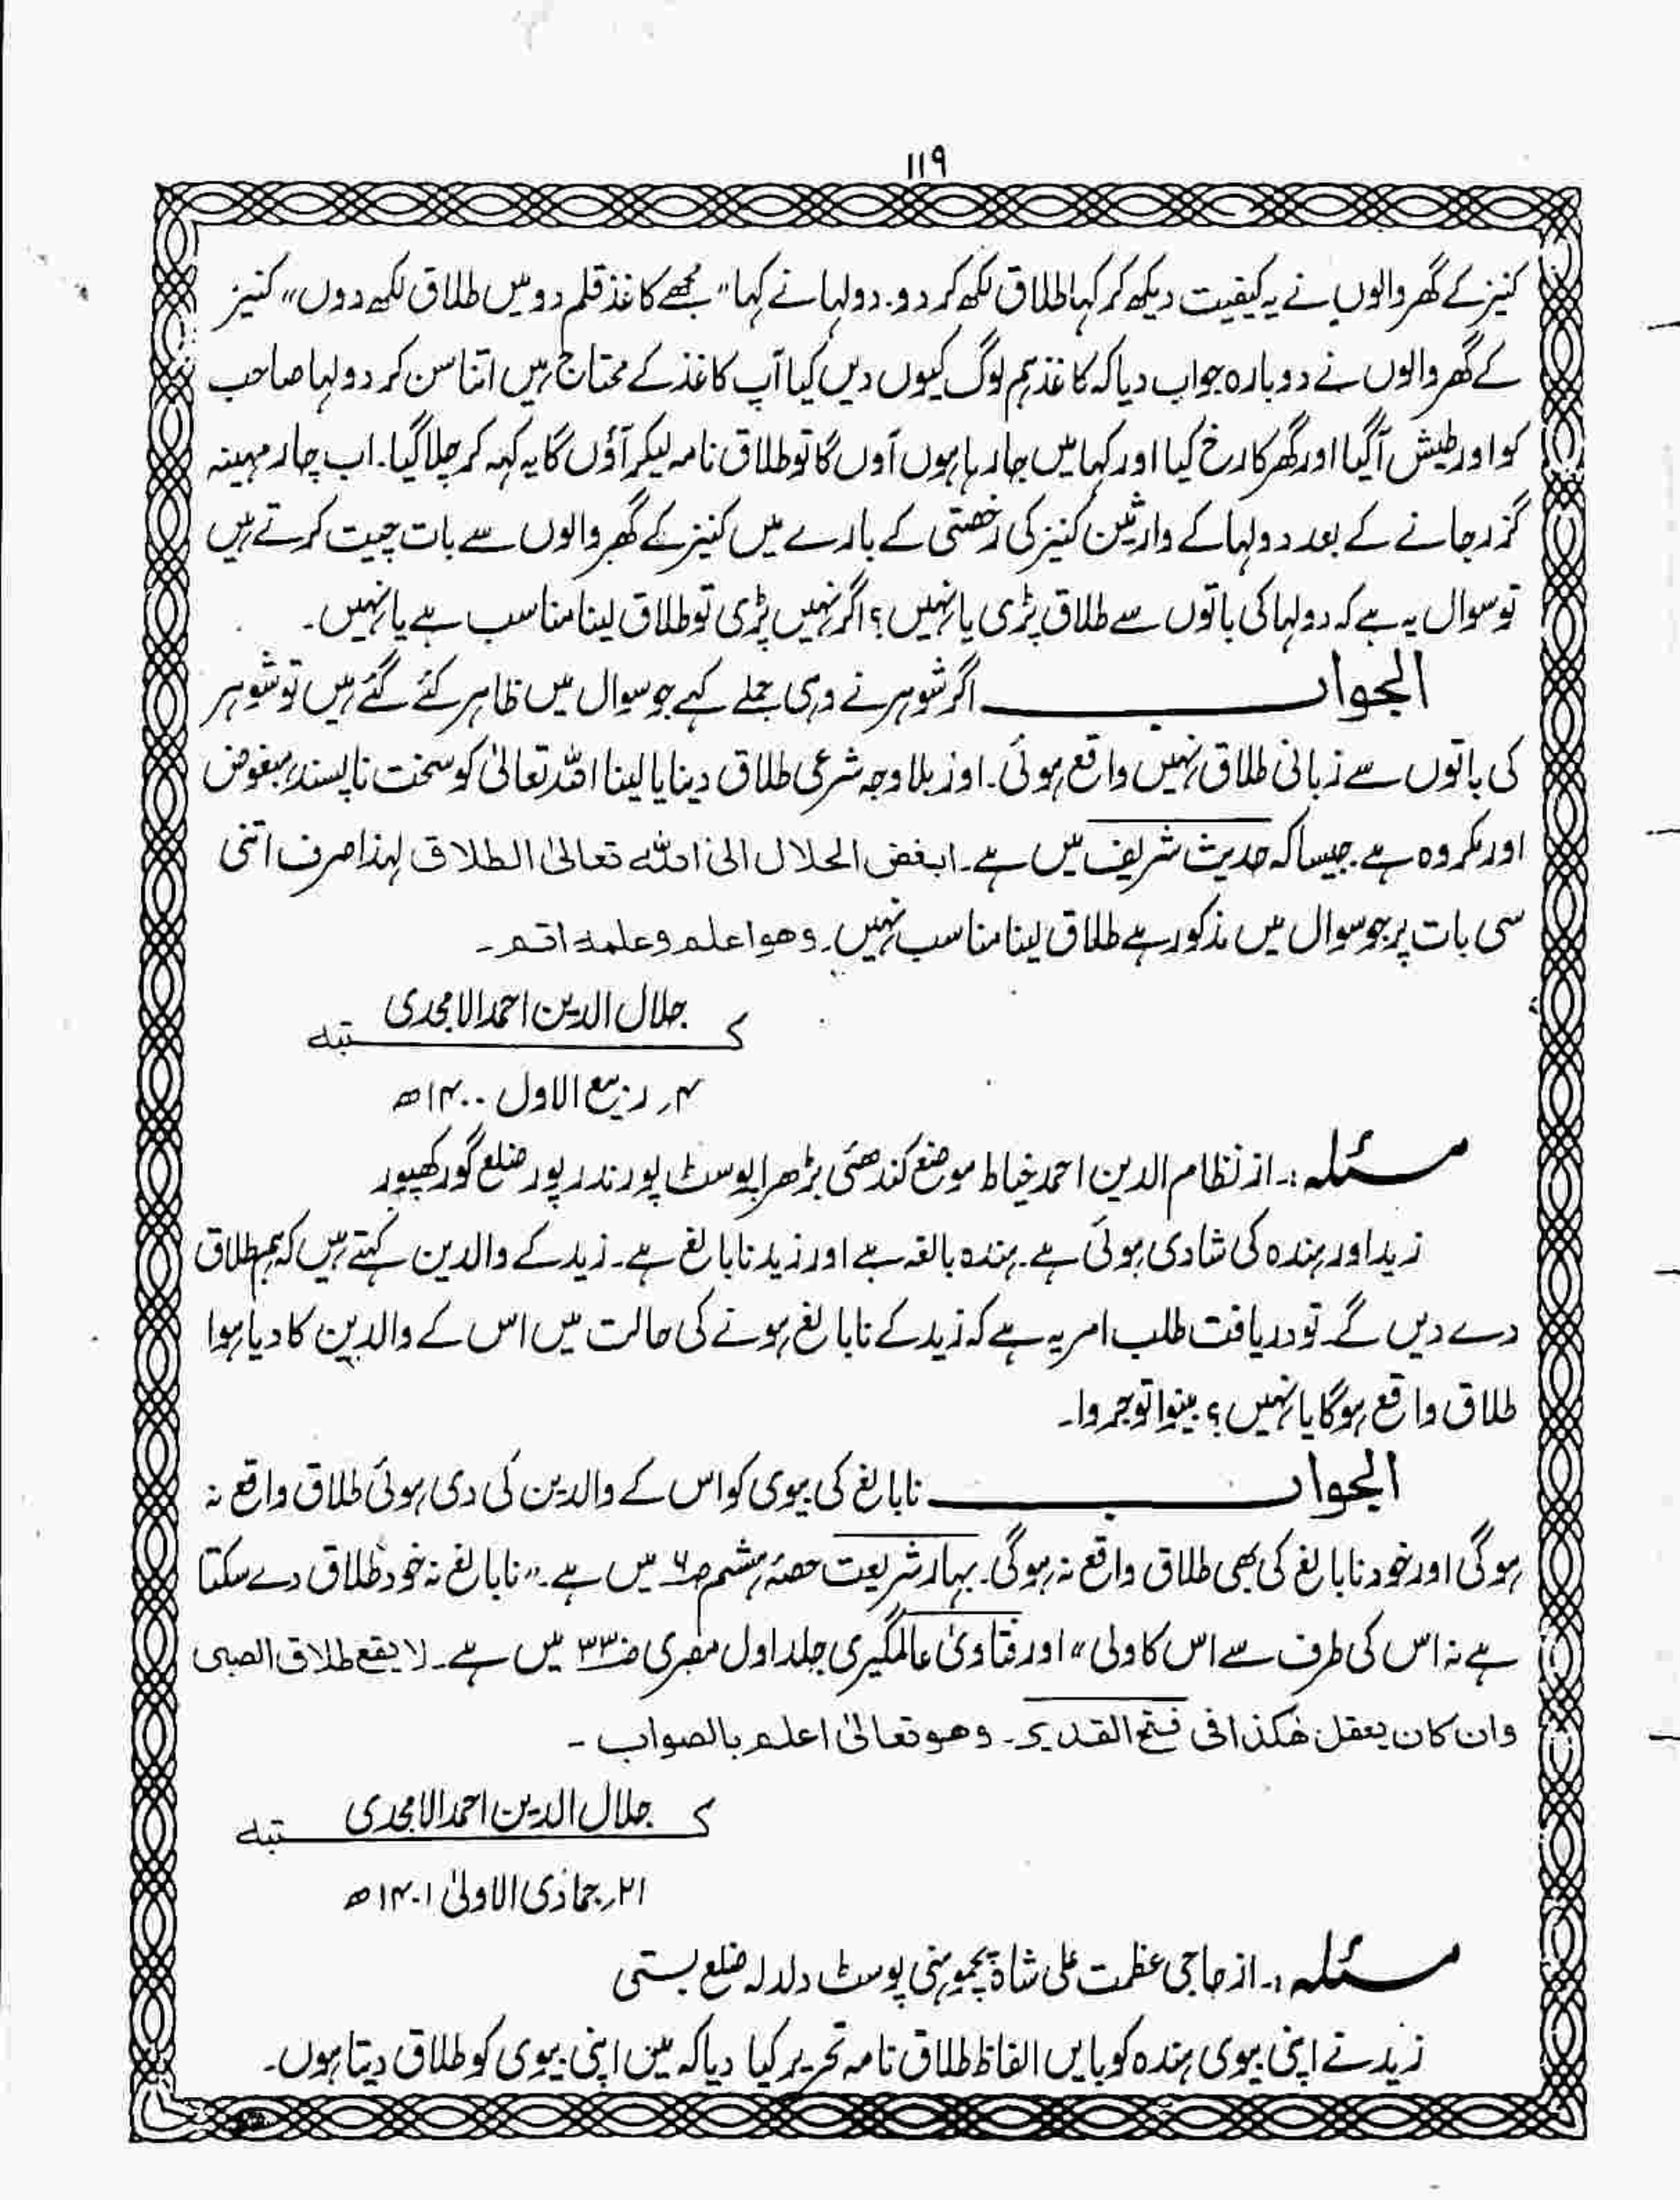 ۱۱۹
کنیز کے گھر والوں نے یہ کیفیت دیکھ کر کہا طلاق لکھ کر دو۔ دولہا نے کہا "مجھے کاغذ قلم دو میں طلاق لکھ دوں" کنیز
کے گھر والوں نے دوبارہ جواب دیا کہ کاغذ ہم لوگ کیوں دیں کیا آپ کاغذ کے محتاج ہیں اتنا سن کر دولہا صاحب
کو اور طیش آگیا اور گھر کا رخ کیا اور کہا میں جارہا ہوں آوں گا تو طلاق نامہ لیکر آؤں گا یہ کہہ کر چلا گیا۔ اب چار مہینہ
گزر جانے کے بعد دولہا کے وارثین کنیز کی رخصتی کے بارے میں کنیز کے گھر والوں سے بات چیت کرتے ہیں
تو سوال یہ ہے کہ دولہا کی باتوں سے طلاق پڑی یا نہیں؟ اگر نہیں پڑی تو طلاق لینا مناسب ہے یا نہیں۔
الجواب ــــــ اگر شوہر نے وہی جملے کہے جو سوال میں ظاہر کئے گئے ہیں تو شوہر
کی باتوں سے زبانی طلاق نہیں واقع ہوئی۔ اور بلا وجہ شرعی طلاق دینا یا لینا اللہ تعالیٰ کو سخت ناپسند، مبغوض
اور مکروہ ہے۔ جیسا کہ حدیث شریف میں ہے۔ ابغض الحلال الیٰ اللہ تعالیٰ الطلاق لہذا صرف اتنی
سی بات پر جو سوال میں مذکور ہے طلاق لینا مناسب نہیں۔ وھو اعلم وعلمہ اتم۔
کتبہ جلال الدین احمد الامجدی
۴؍ ربیع الاول ۱۴۰۰ھ
مسئلہ :۔ از نظام الدین احمد خیاط موضع کندھئی بڑھرا پوسٹ پورندر پور ضلع گورکھپور
زید اور ہندہ کی شادی ہوئی ہے۔ ہندہ بالغہ ہے اور زید نابالغ ہے۔ زید کے والدین کہتے ہیں کہ ہم طلاق
دے دیں گے۔ تو دریافت طلب امر یہ ہے کہ زید کے نابالغ ہونے کی حالت میں اس کے والدین کا دیا ہوا
طلاق واقع ہوگا یا نہیں؟ بینوا توجروا۔
الجواب ــــــ نابالغ کی بیوی کو اس کے والدین کی دی ہوئی طلاق واقع نہ
ہوگی اور خود نابالغ کی بھی طلاق واقع نہ ہوگی۔ بہار شریعت حصۂ ہشتم ص۶ میں ہے۔ "نابالغ نہ خود طلاق دے سکتا
ہے نہ اس کی طرف سے اس کا ولی" اور فتاویٰ عالمگیری جلد اول مصری ص۳۳۰ میں ہے۔ لا یقع طلاق الصبی
وان کان یعقل ھٰکذا فی فتح القدیر۔ وھو تعالیٰ اعلم بالصواب۔
کتبہ جلال الدین احمد الامجدی
۲۱؍ جمادی الاولیٰ ۱۴۰۱ھ
مسئلہ :۔ از حاجی عظمت علی شاہ پوسٹ دلدلہ ضلع بستی
زید نے اپنی بیوی ہندہ کو بایں الفاظ طلاق نامہ تحریر کیا دیا کہ میں اپنی بیوی کو طلاق دیتا ہوں۔